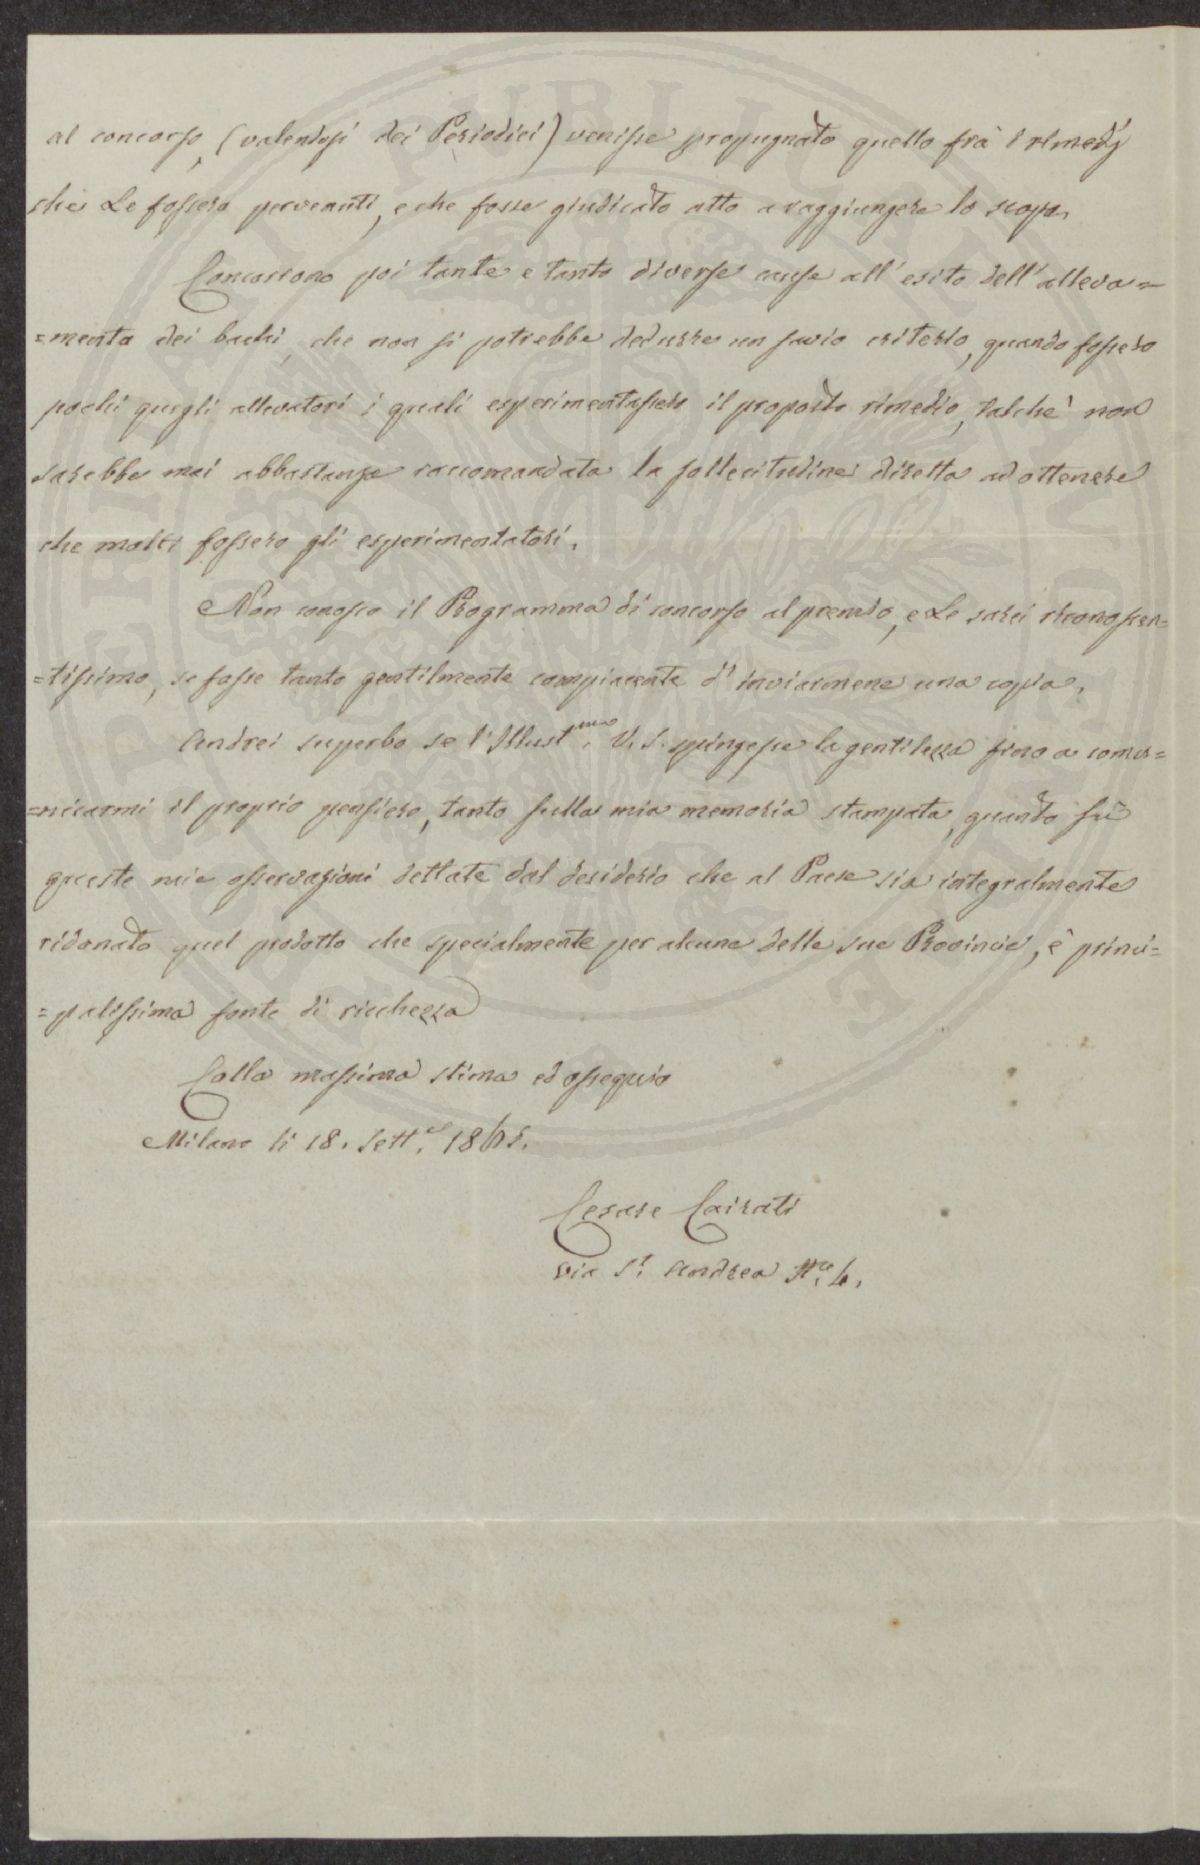 al concorso, (valendosi dei Periodici) venisse propugnato quello frà i rimedj
che Le fossero pervenuti, e che fosse giudicato atto a raggiungere lo scopo.
Concorrono poi tante e tanto diverse cause all'esito dell'alleva=
=mento dei bachi, che non si potrebbe dedurre un savio criterio, quando fossero
pochi quegli allevatori i quali esperimentassero il proposto rimedio, talchè non
sarebbe mai abbastanza raccomandata la sollecitudine diretta ad ottenere
che molti fossero gli esperimentatori.
Non conosco il Programma di concorso al premio, e Le sarei riconoscen=
=tissimo, se fosse tanto gentilmente compiacente d'inviarmene una copia.
Andrei superbo se l'Illust.ma V. S. spingesse la gentilezza fino a comu=
=nicarmi il proprio pensiero, tanto sulla mia memoria stampata, quanto sù
queste mie osservazioni dettate dal desiderio che al Paese sia integralmente
ridonato quel prodotto che specialmente per alcune delle sue Provincie, è princi=
=palissima fonte di ricchezza
Colla massima stima ed ossequio
Milano li 18. Sett.e 1865.
Cesare Cairati
Via S.t Andrea N.o 6.